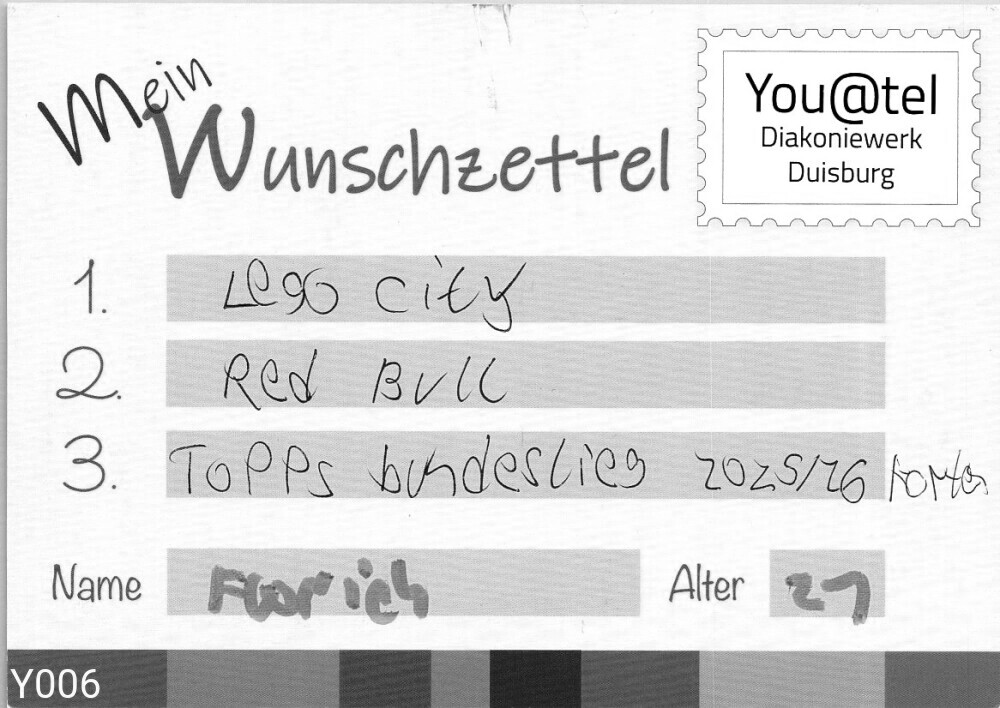 Mein
Wunschzettel
You@tel
Diakoniewerk
Duisburg
1. Lego City
2. Red Bull
3. Topps bundeslieg 2025/26 karten
Name Florich Alter 21
Y006